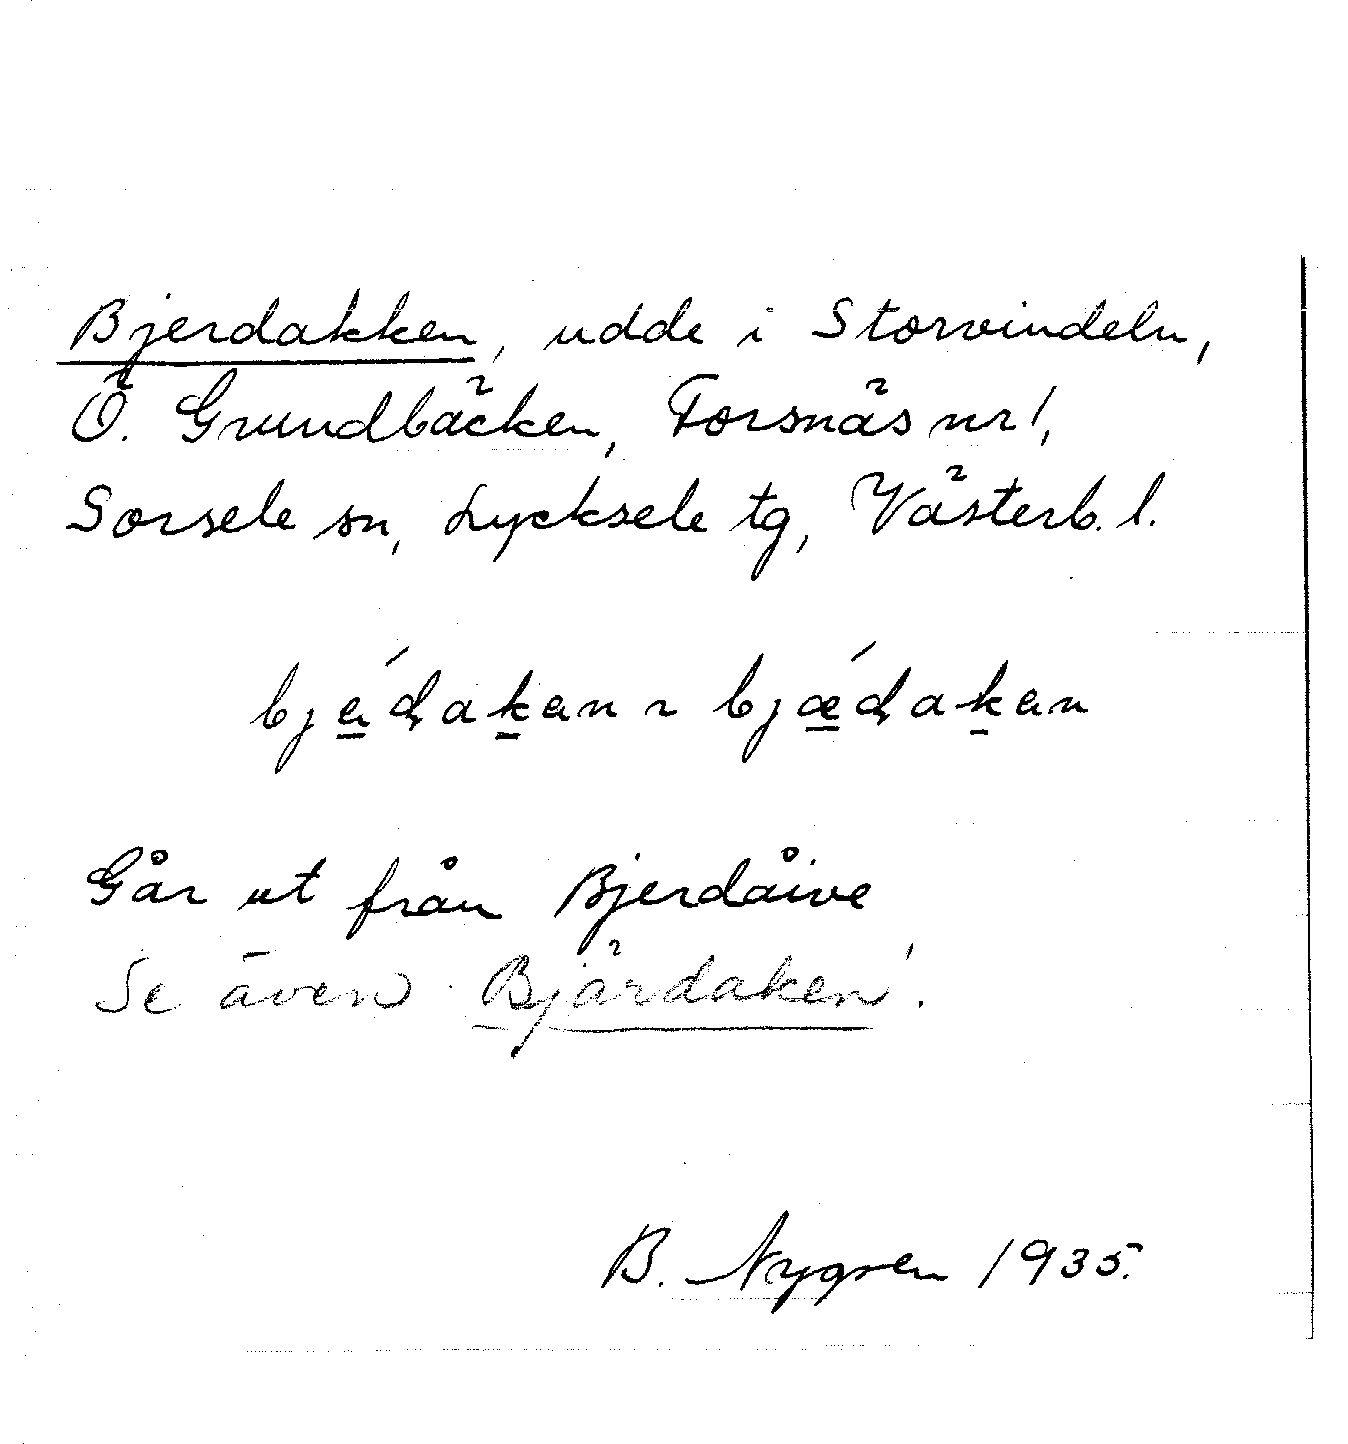 Bjerdakken, udde i Storvindeln,
Ö. Grundbäcken, Forsnäs nr 1,
Sorsele sn, Lycksele tg, Västerb. l.
bjé̱ɖaḵen ~ bjǽ̱ɖaḵen
Går ut från Bjerdåive
Se även Bjärdaken!
B. Nygren 1935.